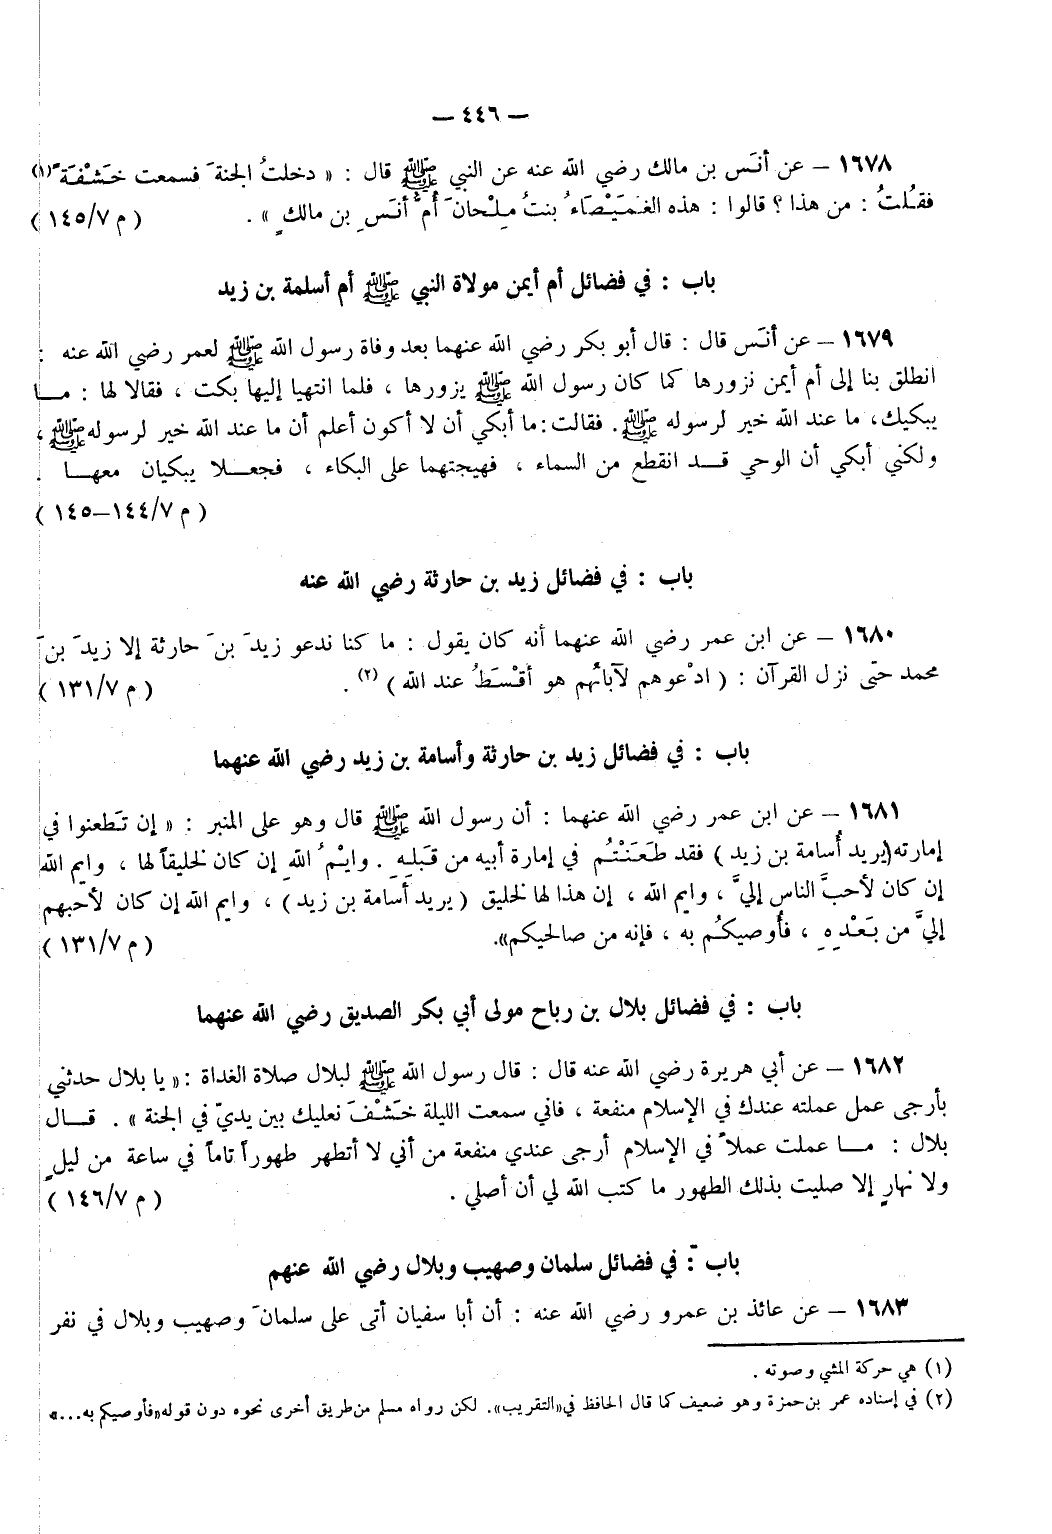 — ٤٤٦ —
١٦٧٨ — عن أنَس بن مالك رضي الله عنه عن النبي ﷺ قال : « دخلتُ الجنةَ فسمعت خَشْفَةً (١)
فقُلتُ : من هذا ؟ قالوا : هذه الغُمَيْصَاءُ بنتُ مِلْحانَ أُمُّ أنَسِ بن مالكٍ » . ( م ١٤٥/٧ )
باب : في فضائل أم أيمن مولاة النبي ﷺ أم أسلمة بن زيد
١٦٧٩ — عن أنَس قال : قال أبو بكر رضي الله عنهما بعد وفاة رسول الله ﷺ لعمر رضي الله عنه :
انطلق بنا إلى أم أيمن نزورها كما كان رسول الله ﷺ يزورها ، فلما انتهيا إليها بكت ، فقالا لها : مــا
يبكيك، ما عند الله خير لرسوله ﷺ. فقالت: ما أبكي أن لا أكون أعلم أن ما عند الله خير لرسوله ﷺ ،
ولكني أبكي أن الوحي قــد انقطع من السماء ، فهيجتهما على البكاء ، فجعــلا يبكيان معهــا .
( م ١٤٤/٧—١٤٥ )
باب : في فضائل زيد بن حارثة رضي الله عنه
١٦٨٠ — عن ابن عمر رضي الله عنهما أنه كان يقول : ما كنا ندعو زيدَ بنَ حارثة إلا زيدَ بنَ
محمد حتّى نزل القرآن : ( ادْعوهم لآبائهم هو أقْسَطُ عند الله ) (٢) . ( م ١٣١/٧ )
باب : في فضائل زيد بن حارثة وأسامة بن زيد رضي الله عنهما
١٦٨١ — عن ابن عمر رضي الله عنهما : أن رسول الله ﷺ قال وهو على المنبر : « إن تَطعنوا في
إمارته (يريد أُسامة بن زيد ) فقد طَعَنْتُم في إمارة أبيه من قَبلِهِ . وايْمُ اللهِ إن كان لخليقاً لها ، وايم الله
إن كان لأحبَّ الناس إليَّ ، وايم الله ، إن هذا لها لخليق ( يريد أسامة بن زيد ) ، وايم الله إن كان لأحبهم
إليَّ من بَعْدِهِ ، فأُوصيكُم به ، فإنه من صالحيكم». ( م ١٣١/٧ )
باب : في فضائل بلال بن رباح مولى أبي بكر الصديق رضي الله عنهما
١٦٨٢ — عن أبي هريرة رضي الله عنه قال : قال رسول الله ﷺ لبلال صلاة الغداة : « يا بلال حدثني
بأرجى عمل عملته عندك في الإسلام منفعة ، فاني سمعت الليلة خَشْفَ نعليك بين يديّ في الجنة » . قــال
بلال : مــا عملت عملاً في الإسلام أرجى عندي منفعة من أني لا أتطهر طهوراً تاماً في ساعة من ليلٍ
ولا نهارٍ إلا صليت بذلك الطهور ما كتب الله لي أن أصلي . ( م ١٤٦/٧ )
باب : في فضائل سلمان وصهيب وبلال رضي الله عنهم
١٦٨٣ — عن عائذ بن عمرو رضي الله عنه : أن أبا سفيان أتى على سلمانَ وصهيب وبلال في نفر
(١) هي حركة المشي وصوته .
(٢) في إسناده عمر بن حمزة وهو ضعيف كما قال الحافظ في «التقريب». لكن رواه مسلم من طريق أخرى نحوه دون قوله «فأوصيكم به ...»